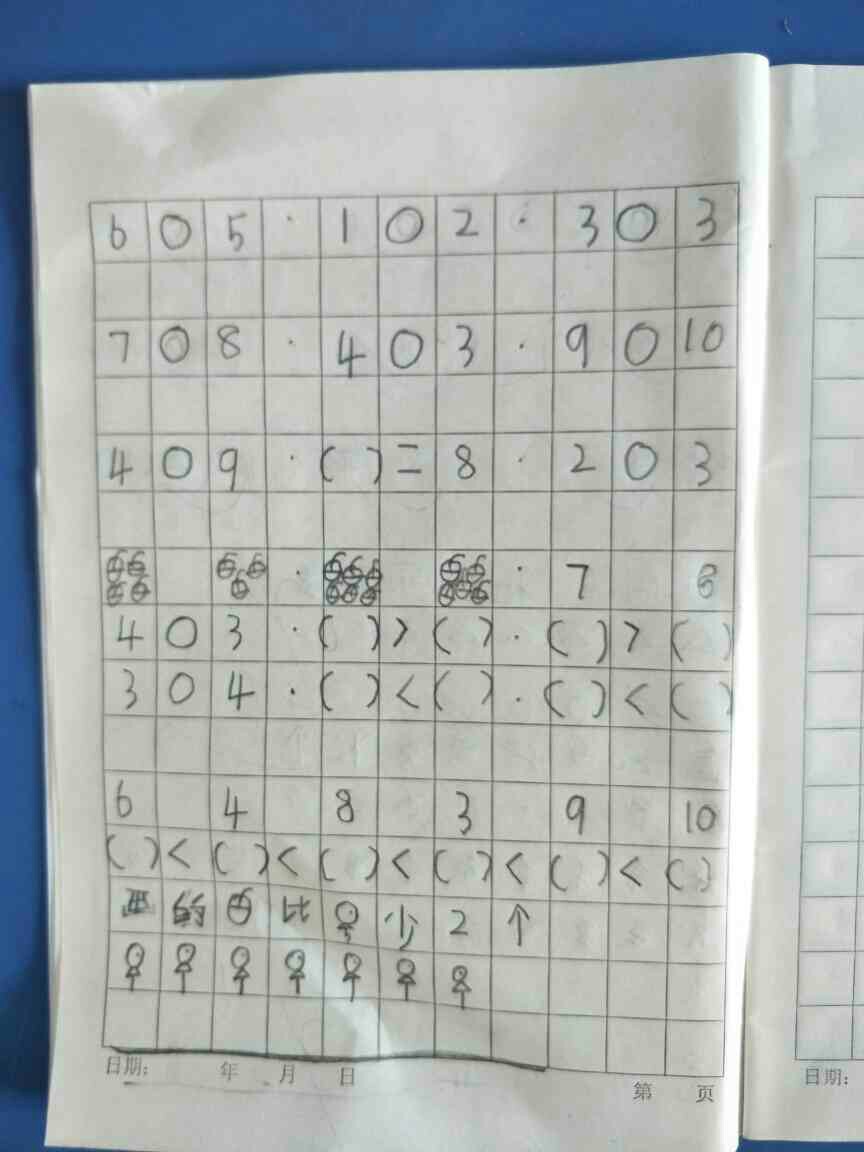 6 ○ 5 · 1 ○ 2 · 3 ○ 3
7 ○ 8 · 4 ○ 3 · 9 ○ 10
4 ○ 9 · ( ) = 8 · 2 ○ 3
· · 7 6
4 ○ 3 · ( ) > ( ) · ( ) > ( )
3 ○ 4 · ( ) < ( ) · ( ) < ( )
6 4 8 3 9 10
( ) < ( ) < ( ) < ( ) < ( ) < ( )
画 的 比 少 2 个
日期: 年 月 日
第 页
日期: